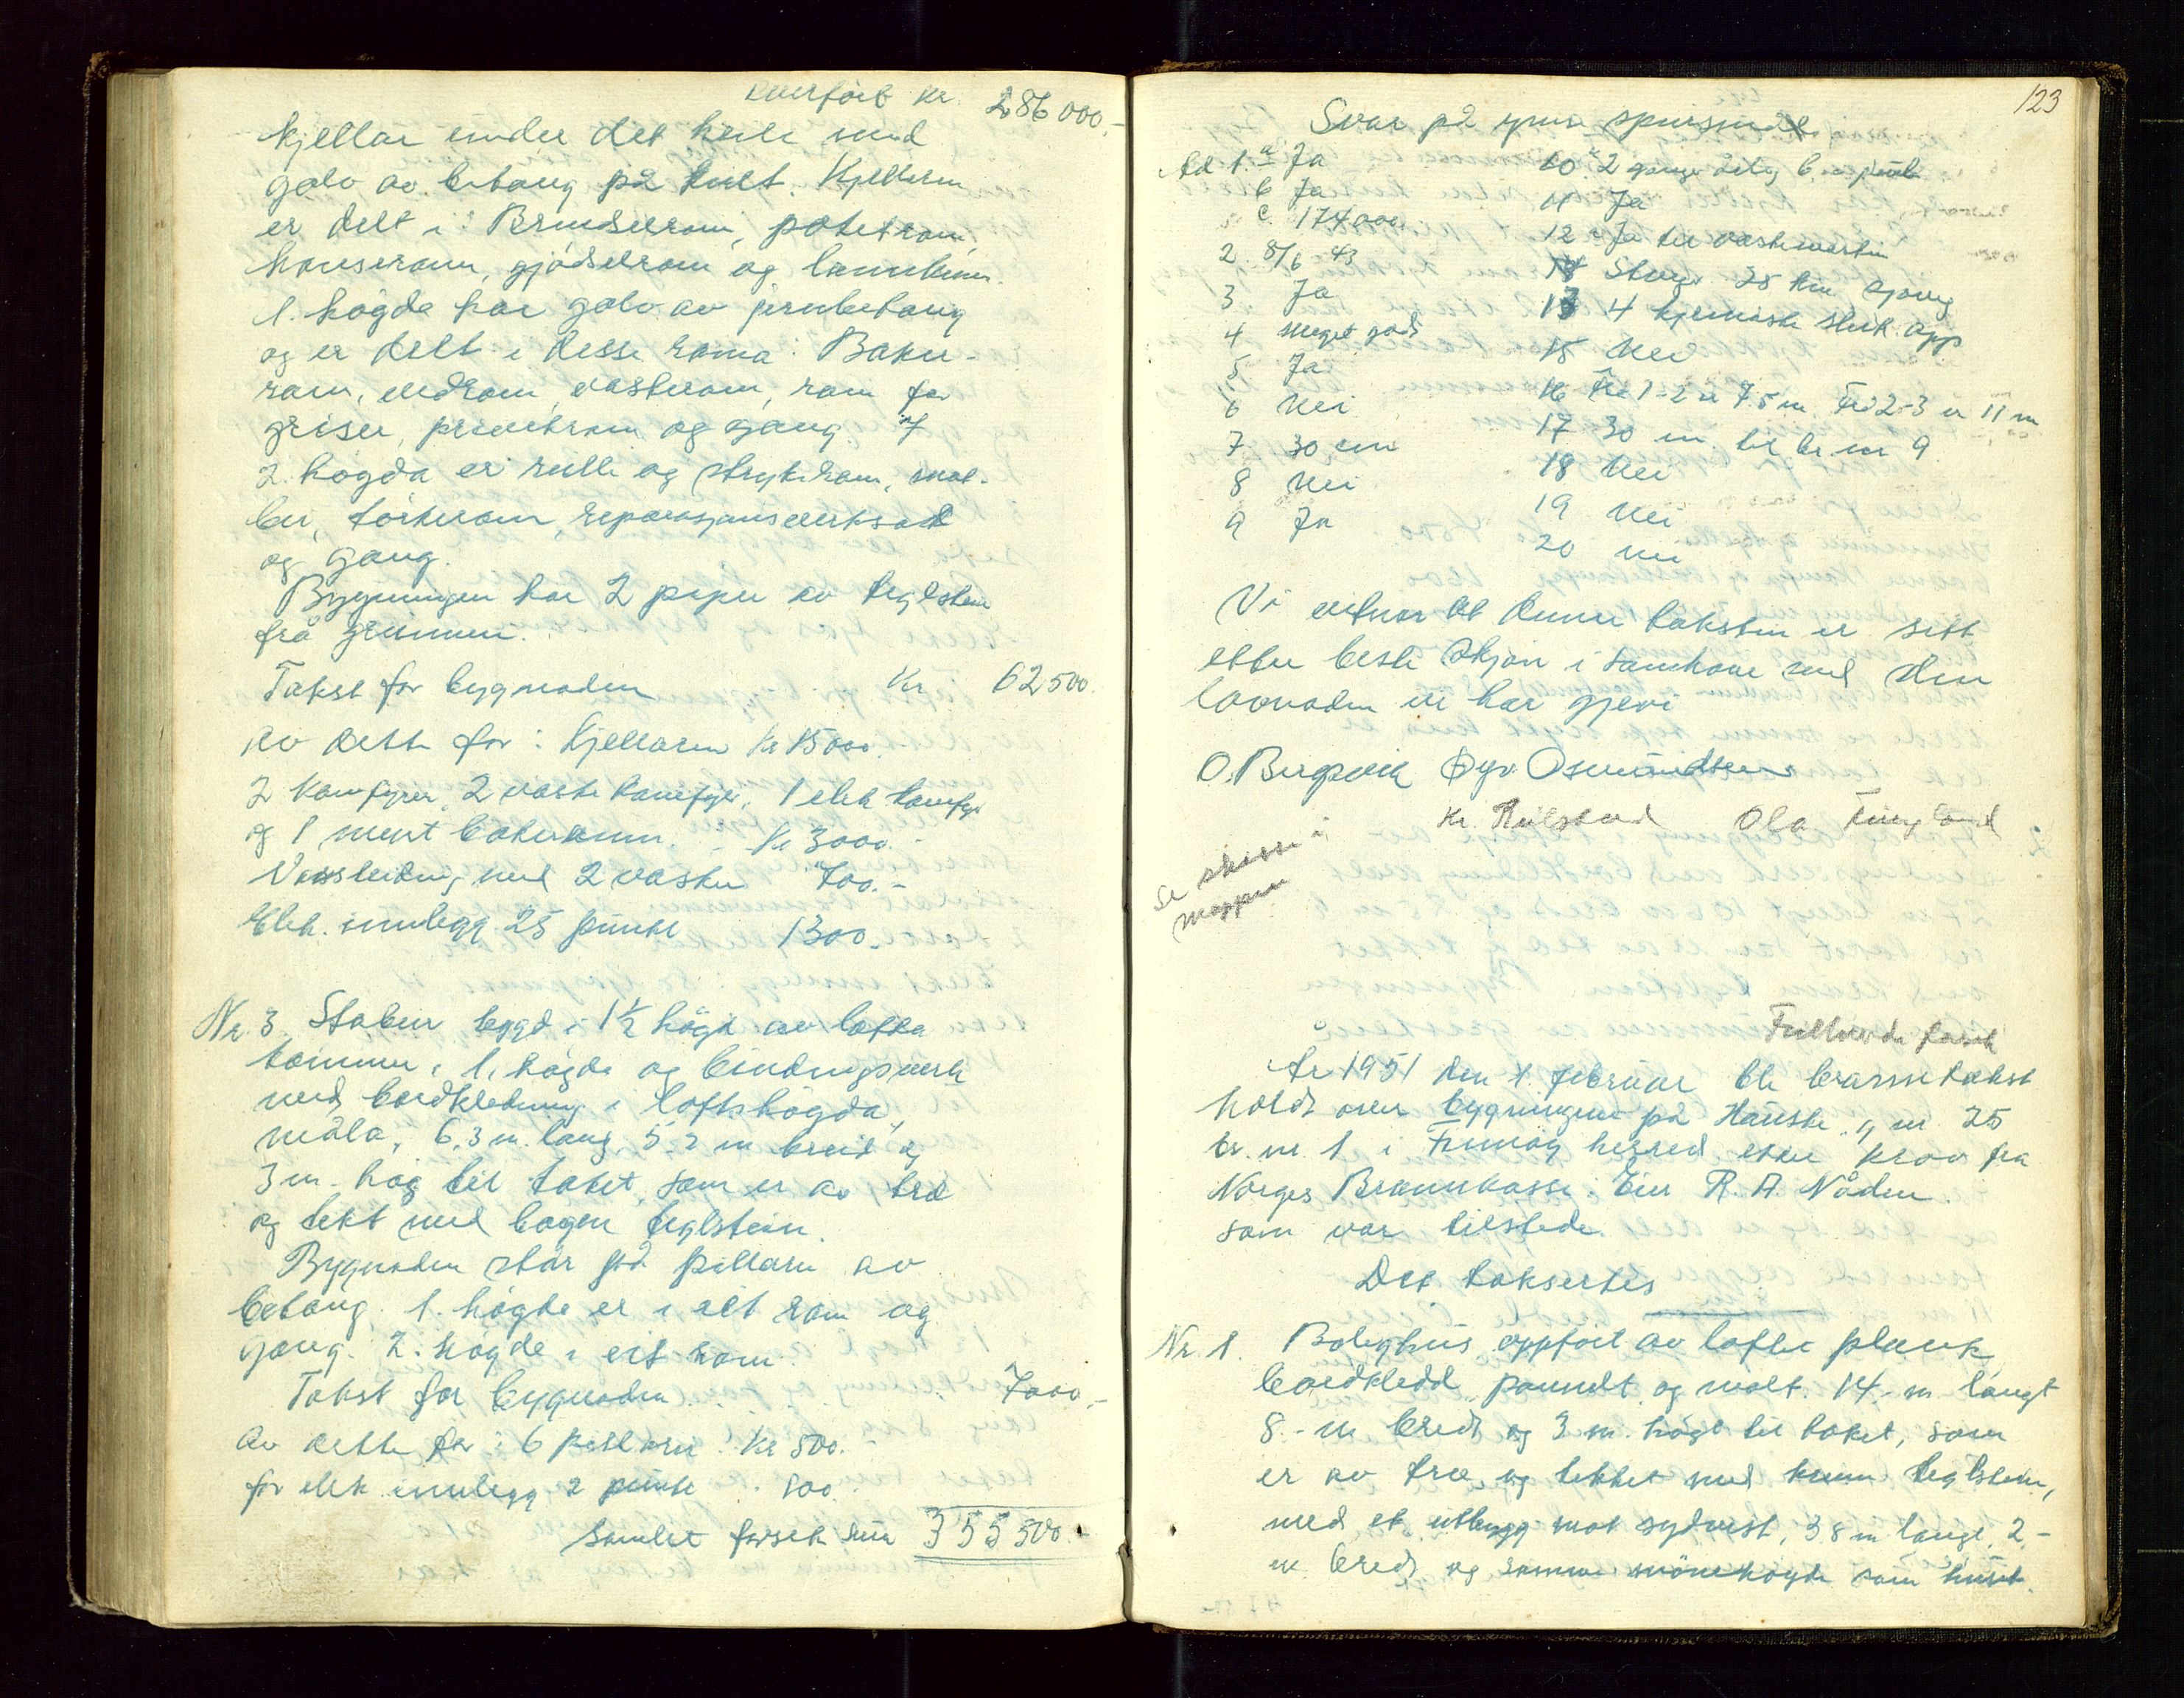 Overført kr. 286 000.-
kjellar under det heile med
golv av betong på kult. Kjellaren
er delt i: Brendselrom, potetrom,
gjødselrom og
1. høgda har golv av jernbetong
og er delt i desse roma: Baker-
rom, vedrom, vaskerom, rom for
griser, privetrom og gang. I
2. høgda er rulle og strykerom, mat-
bu, tørkerom, reparasjonsverksted
og gang.
Bygningen har 2 piper av teglstein
frå grunnen.
Takst for bygnaden Kr. 62 500.
Av dette for: Kjellaren Kr 15 000.
2 komfyrer, 2 vaske komfyr, 1 elek komfyr
og 1 murt bakeromn. Kr 3000.-
Vassleidning med 2 vasker 700.-
Elek. innlegg 25 punkt 1300.-
Nr. 3. Stabur bygd i 1 1/2 høgd av lafta
tømmer i 1. høgda og bindingsverk
med bordkledning i loftshøgda,
måla, 6,3 m. lang 5.2 m breid og
3 m. høg til taket, som er av tre
og tekt med bogen teglstein.
Bygnaden står på pillarer av
betong. 1. høgda er i eit rom og
gang. 2. høgde i eit rom.
Takst for bygnaden 7000.-
Av dette for: 6 pillarer: Kr 500.-
for elek innlegg 2 punkt . 100.-
Samlet forsek. sum 355 500.-
123
Svar på ymse spursmål
Ad 1. a Ja
b Ja
c. 174000
2. 8/6 43
3 Ja
4 meget god
5 Ja
6 Nei
7 30 cm
8 Nei
9 Ja
10. a 2 ganger årleg b.
11 Ja
12 Ja
14 25 km
13 4 kjemiske slukk. app
15 Nei
16 Frå 1-2 er 7.5 m. Frå 2-3 er 11 m
17 30 m. til br nr 9
18 Nei
19 Nei
20 Nei
Vi vitnar at denne taksten er sett
etter beste skjøn i samhøve med den
lovnaden vi har gjevi
O. Bergsvik Øyv. Osmundsen
Kr. Hulstad Ola Tungland
Se skisse i
mappen
Fullverdi forsek
År 1951 den 1. februar ble branntakst
holdt over bygningene på Hauske, g. nr. 25
br. nr. 1 i Finnøy herred etter krav fra
Norges Brannkasse. Eier R. A. Nåden.
som var tilstede.
Det taksertes
Nr. 1. Bolighus oppført av laftet plank
bordkledd, pannelt og malt. 14.- m. langt
8.- m bredt og 3 m. høgt til taket, som
er av tre og tekket med krum teglstein,
med et utbygg mot sydvest, 3.8 m langt, 2.-
m. bredt og samme mønehøgde som huset.